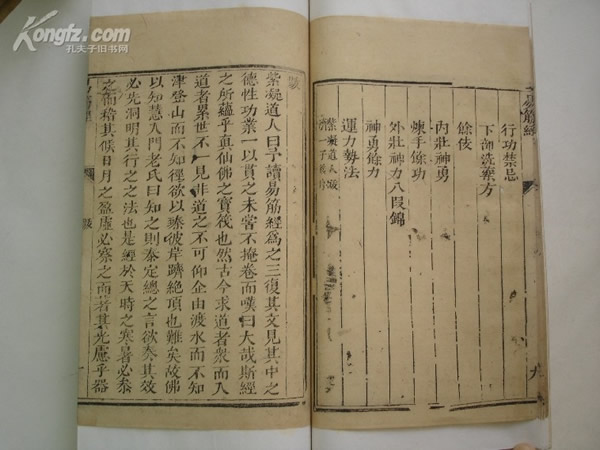 Kongfz.com
孔夫子旧书网
易筋經
行功禁忌
下部洗藥方
餘伎
內壯神勇
煉手餘功
外壯神力八段錦
神勇餘力
運力勢法
紫凝道人跋
跋
紫凝道人曰予讀易筋經爲之三復其文見其中之
德性功業一以貫之未嘗不掩卷而嘆曰大哉斯經
之所蘊乎真仙佛之寶筏也然古今求道者衆而入
道者累世不一見非道之不可仰企由渡水而不知
津登山而不知徑欲以臻彼岸躋絕頂也難矣故佛
以知慧入門老氏曰知之則泰定總之言欲奏其效
必先洞明其行之之法也是經於天時之寒暑必叅
之而稽其候日月之盈虛必察之而著其光慮乎器
跋